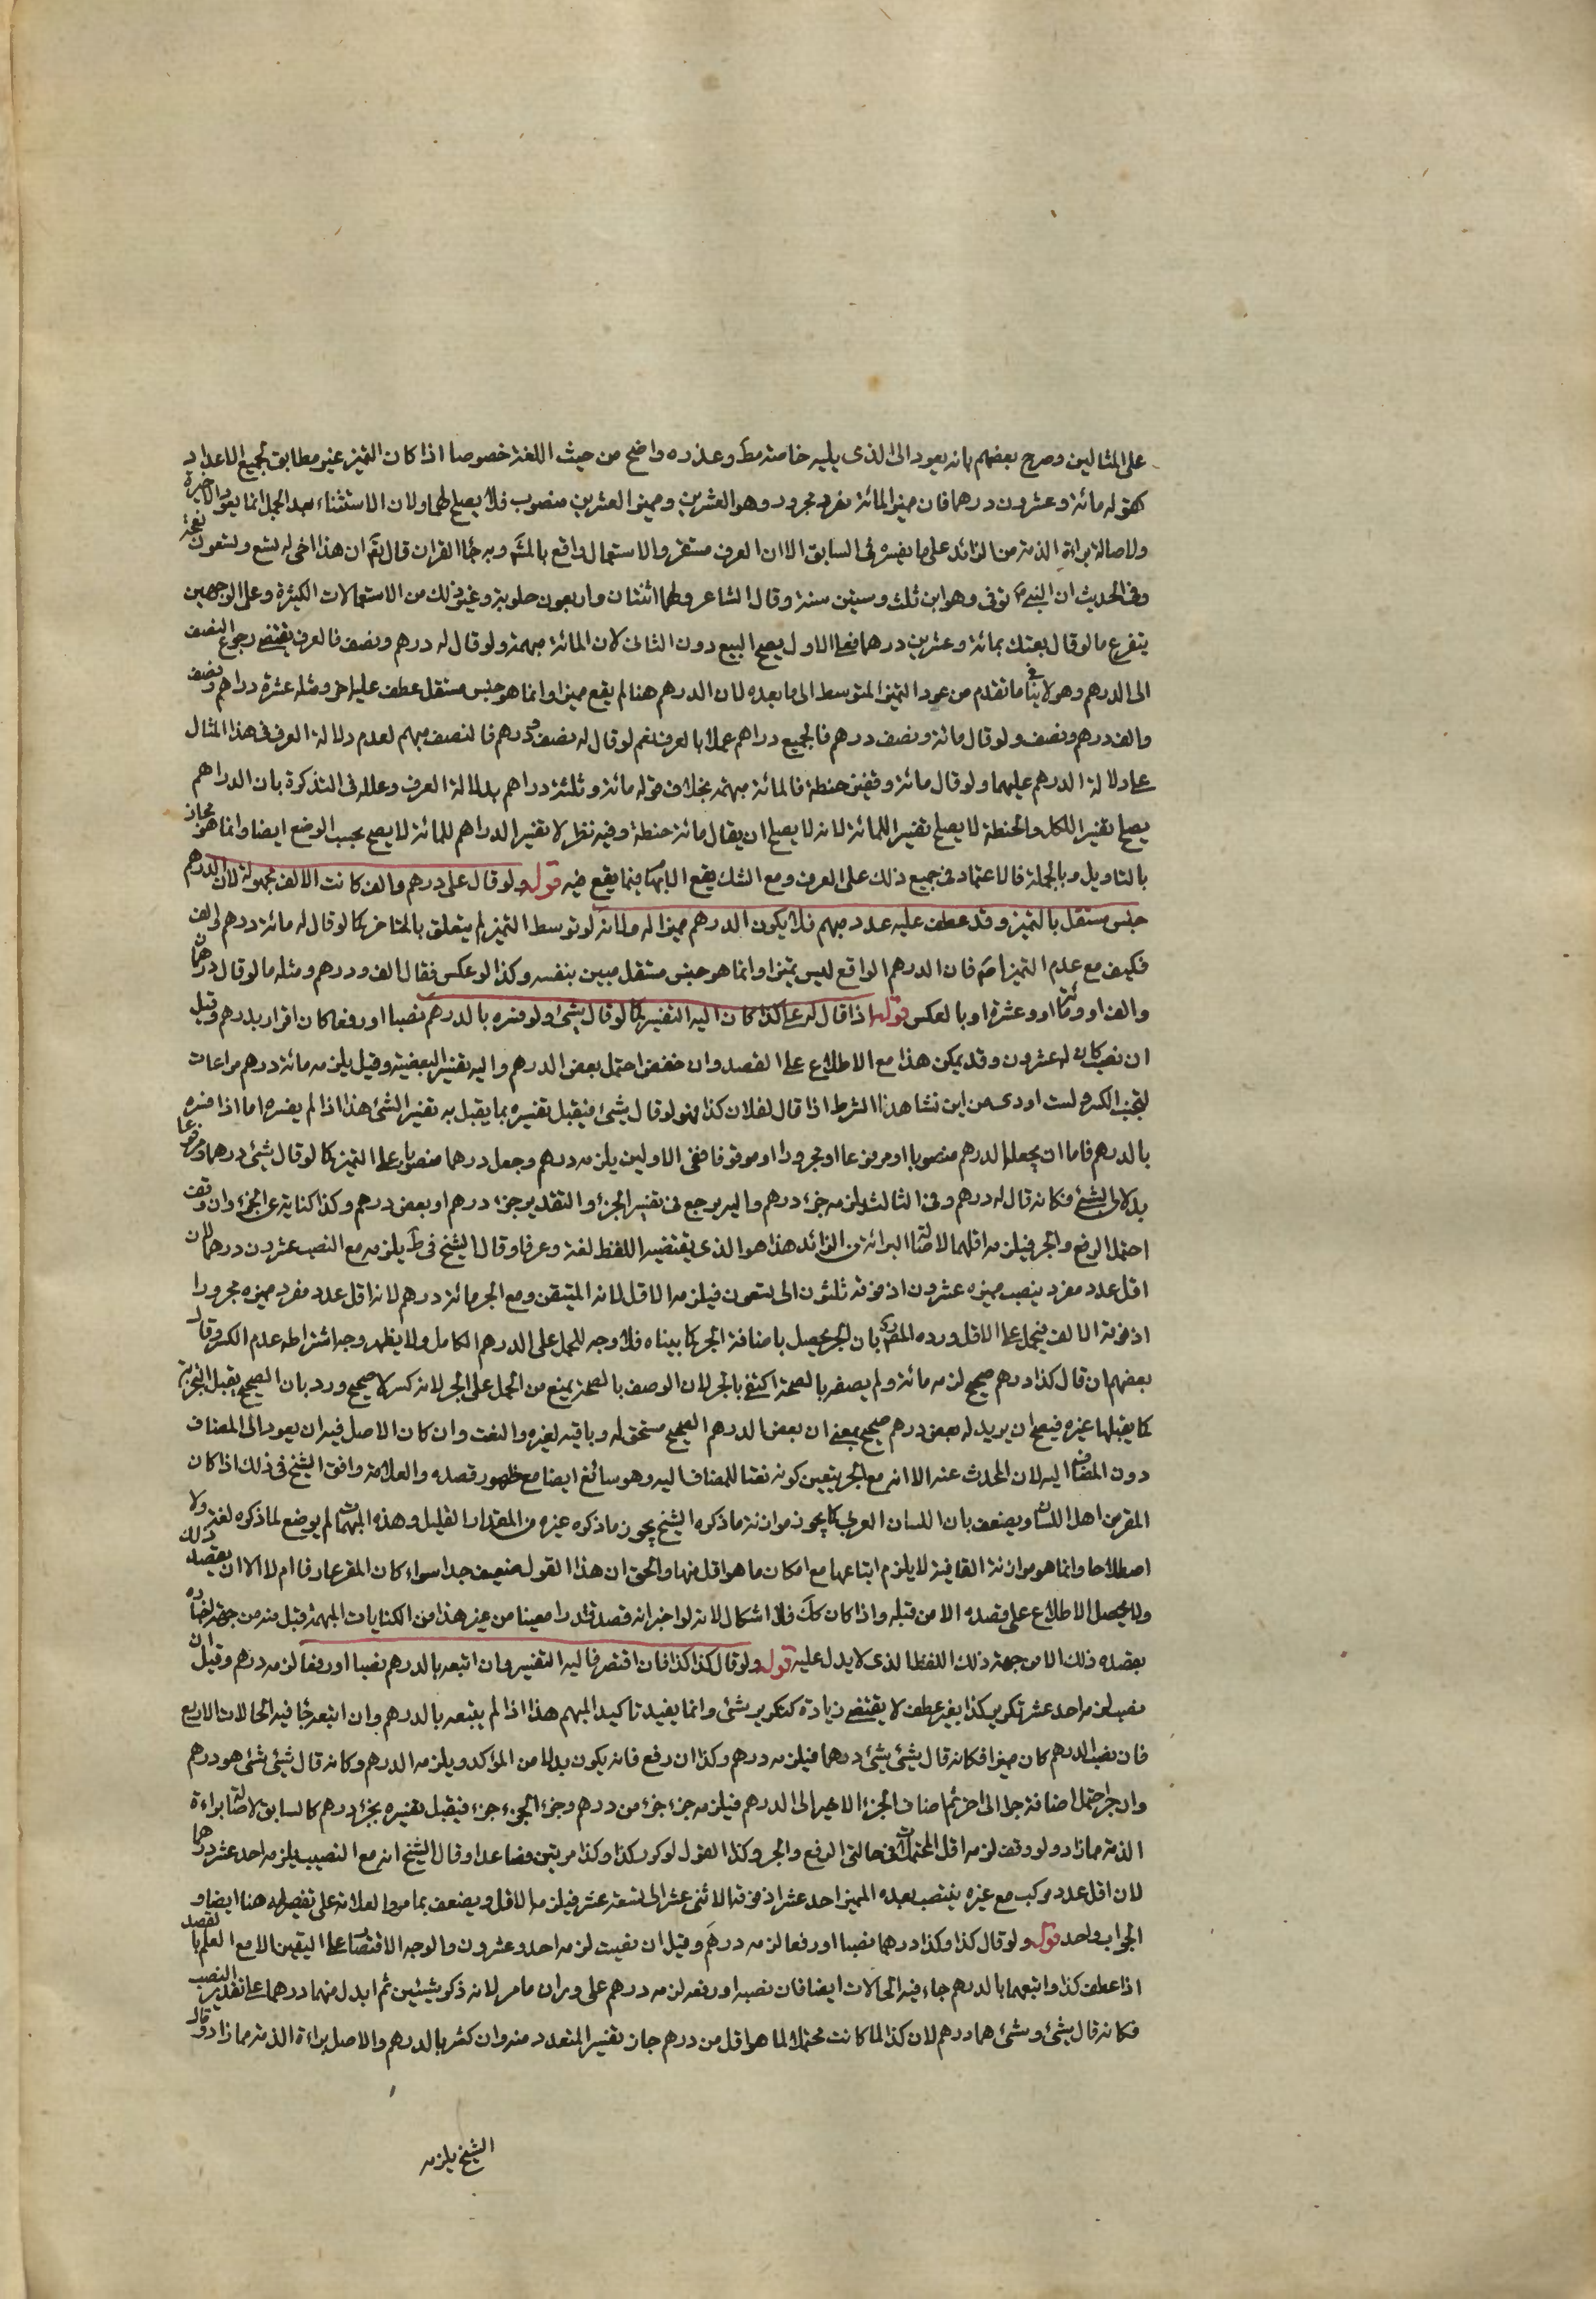 على المثالين وصرح بعضهم بانه يعود الى الذى يليه خاصة مط وعذره واضح من حيث اللغة خصوصا اذا كان التميز غير مطابق لجميع الاعداد
كقوله مائة وعشرون درهما فان مميز المائة مفرد مجرور وهو العشرين ومميز العشرين منصوب فلا يصلح لهما ولان الاستثناء بعد الجمل انما يعود الى الاخيرة
ولاصالة براءة الذمة من الزائد على ما يفسره فى السابق الا ان العرف مستقر والاستعمال واقع بالمتم وبه جاء القران قال تعم ان هذا اخى له تسع وتسعون نعجة
وفى الحديث ان النبى ص توفى وهو ابن ثلث وستين سنة وقال الشاعر ولهما اثنتان واربعون حلوبة وغير ذلك من الاستعمالات الكثيرة وعلى الوجهين
يتفرع ما لو قال بعتك بمائة وعشرين درهما فعلى الاول يصح البيع دون الثانى لان المائة مبهمة ولو قال له درهم ونصف فالعرف يقتضى رجوع النصف
الى الدرهم وهو لا ينافى ما تقدم من عود التميز المتوسط الى ما بعده لان الدرهم هنا لم يقع مميزا وانما هو جنس مستقل عطف عليه اخر ومثله عشرة دراهم ونصف
والف درهم ونصف ولو قال مائة ونصف درهم فالجميع دراهم عملا بالعرف نعم لو قال له نصف ودرهم فالنصف مبهم لعدم دلالة العرف فى هذا المثال
على دلالة الدرهم عليهما ولو قال مائة وقفيز حنطة فالمائة مبهمة بخلاف قوله مائة وثلثة دراهم بدلالة العرف وعلله فى التذكرة بان الدراهم
يصلح تفسيرا للكل والحنطة لا يصلح تفسيرا للمائة لانه لا يصلح ان يقال مائة حنطة وفيه نظر لا تفسير الدراهم للمائة لا يصح بحسب الوضع ايضا وانما هو مجاز
بالتاويل وبالجملة فالاعتماد فى جميع ذلك على العرف ومع الشك يقع الابهام فيما يقع فيه قوله ولو قال على درهم والف كانت الالف مجهولة لان الدرهم
جنس مستقل بالتميز وقد عطف عليه عدد مبهم فلا يكون الدرهم مميزا له ولانه لو توسط التميز لم يتعلق بالمتاخر كما لو قال له مائة درهم والف
فكيف مع عدم التميز اصم فان الدرهم الواقع ليس تميزا وانما هو جنس مستقل مبين بنفسه وكذا لو عكس فقال الف ودرهم ومثله ما لو قال درهمان
والف او ومائة او وعشرة او بالعكس قوله اذا قال له على كذا كان اليه التفسير كما لو قال شئ ولو فسره بالدرهم نصبا او رفعا كان اقرار بدرهم وقيل
ان نصب كان له عشرون وقد يمكن هذا مع الاطلاع على القصد وان خفض احتمل بعض الدرهم واليه تفسير البعضية وقيل يلزمه مائة درهم مراعات
لتجنب الكسر ولست ادرى من اين نشا هذا الشرط اذا قال لفلان كذا فهو لو قال شئ فيقبل تفسيره بما يقبل به تفسير الشئ هذا اذا لم يفسره اما اذا فسره
بالدرهم فاما ان يجعل الدرهم منصوبا او مرفوعا او مجرورا او موقوفا ففى الاولين يلزمه درهم وجعل درهما منصوبا على التميز كما لو قال شئ درهما ومرفوعا
بدلا من الشئ فكانه قال له درهم وفى الثالث يلزمه جزء درهم واليه يرجع فى تفسير الجزء والتقدير جزء درهم او بعض درهم وكذا كناية عن الجزء وان وقف
احتمل الرفع والجر فيلزمه اقلهما لاصالة البرائة من الزائد هذا هو الذى يقتضيه اللفظ لغة وعرفا وقال الشيخ فى ط يلزمه مع النصب عشرون درهما لان
اقل عدد مفرد ينصب مميزه عشرون اذ فوقه ثلثون الى تسعون فيلزمه الاقل لانه المتيقن ومع الجر مائة درهم لانه اقل عدد مفرد مميزه مجرورا
اذ فوقه الالف فيحمل على الاقل ورده المصم بان الجر يحصل باضافة الجزء كما بيناه فلا وجه للحمل على الدرهم الكامل ولا يظهر وجه اشتراطه عدم الكسر وقال
بعضهم ان قال كذا درهم صحيح لزمه مائة ولم يصفه بالصحة اكتفى بالجر لان الوصف بالصحة يمنع من الحمل على الجر لانه كسر لا صحيح ورد بان الصحيح يقبل التجزية
كما يقبلها غيره فيصح ان يريد له بعض درهم صحيح بمعنى ان بعض الدرهم الصحيح مستحق له وباقيه لغيره والنعت وان كان الاصل فيه ان يعود الى المضاف
دون المضاف اليه لان المحدث عنه الا انه مع الجر يتعين كونه نعتا للمضاف اليه وهو سائغ ايضا مع ظهور قصده والعلامة وافق الشيخ فى ذلك اذا كان
المقر من اهل اللسان ويضعف بان اللسان العربى كما يجوز موازنة ما ذكره الشيخ يجوز ما ذكره غيره من المقدار القليل وهذه المبهمات لم يوضع لما ذكره لغة ولا
اصطلاحا وانما هو موازنة القافية لا يلزم اتباعها مع امكان ما هو اقل منها والحق ان هذا القول ضعيف جدا سواء كان المقر عارفا ام لا الا ان يقصد ذلك
ولا يحصل الاطلاع على قصده الا من قبله واذا كان كك فلا اشكال لانه لو اخبر انه قصد قدرا معينا من غير هذا من الكنايات المبهمة قبل منه من جهة اخباره
بقصده ذلك لا من جهة ذلك اللفظ الذى لا يدل عليه قوله ولو قال كذا كذا فان اقتصر فاليه التفسير وان اتبعه بالدرهم نصبا او رفعا لزمه درهم وقيل ان
نصب لزمه احد عشر تكرير كذا بغير عطف لا يقتضى زيادة كتكرير شئ وانما يفيد تاكيد المبهم هذا اذا لم يتبعه بالدرهم وان اتبعه جاء فيه الحالات الاربع
فان نصب الدرهم كان مميزا فكانه قال شئ شئ درهما فيلزمه درهم وكذا ان رفع فانه يكون بدلا من المؤكد ويلزمه الدرهم وكانه قال شئ شئ هو درهم
وان جر احتمل اضافة جزء الى اخر ثم اضاف الجزء الاخير الى الدرهم فيلزمه جزء جزء من درهم وجزء الجزء جزء فيقبل تفسيره بجزء درهم كالسابق لاصالة براءة
الذمة مما زاد ولو وقف لزمه اقل المحتملات فى حالتى الرفع والجر وكذا القول لو كرر كذا وكذا مرتين فصاعدا وقال الشيخ انه مع النصب يلزمه احد عشر درهما
لان اقل عدد مركب مع غيره ينتصب بعده المميز احد عشر اذ فوقه الاثنى عشر الى تسعة عشر فيلزمه الاقل ويضعف بما مر والعلامة على تفصيله هنا ايضا و
الجواب واحد قوله ولو قال كذا وكذا درهما نصبا او رفعا لزمه درهم وقيل ان نصبت لزمه احد وعشرون والوجه الاقتصار على اليقين الا مع العلم بالقصد
اذا عطف كذا واتبعهما بالدرهم جاء فيه الحالات ايضا فان نصبه او رفعه لزمه درهم على وزان ما مر لانه ذكر شيئين ثم ابدل منهما درهما على تقدير النصب
فكانه قال شئ وشئ هما درهم لان كذا لما كانت محتملا لما هو اقل من درهم جاز تفسير المتعدد منه وان كثر بالدرهم والاصل براءة الذمة مما زاد وقال
الشيخ يلزمه